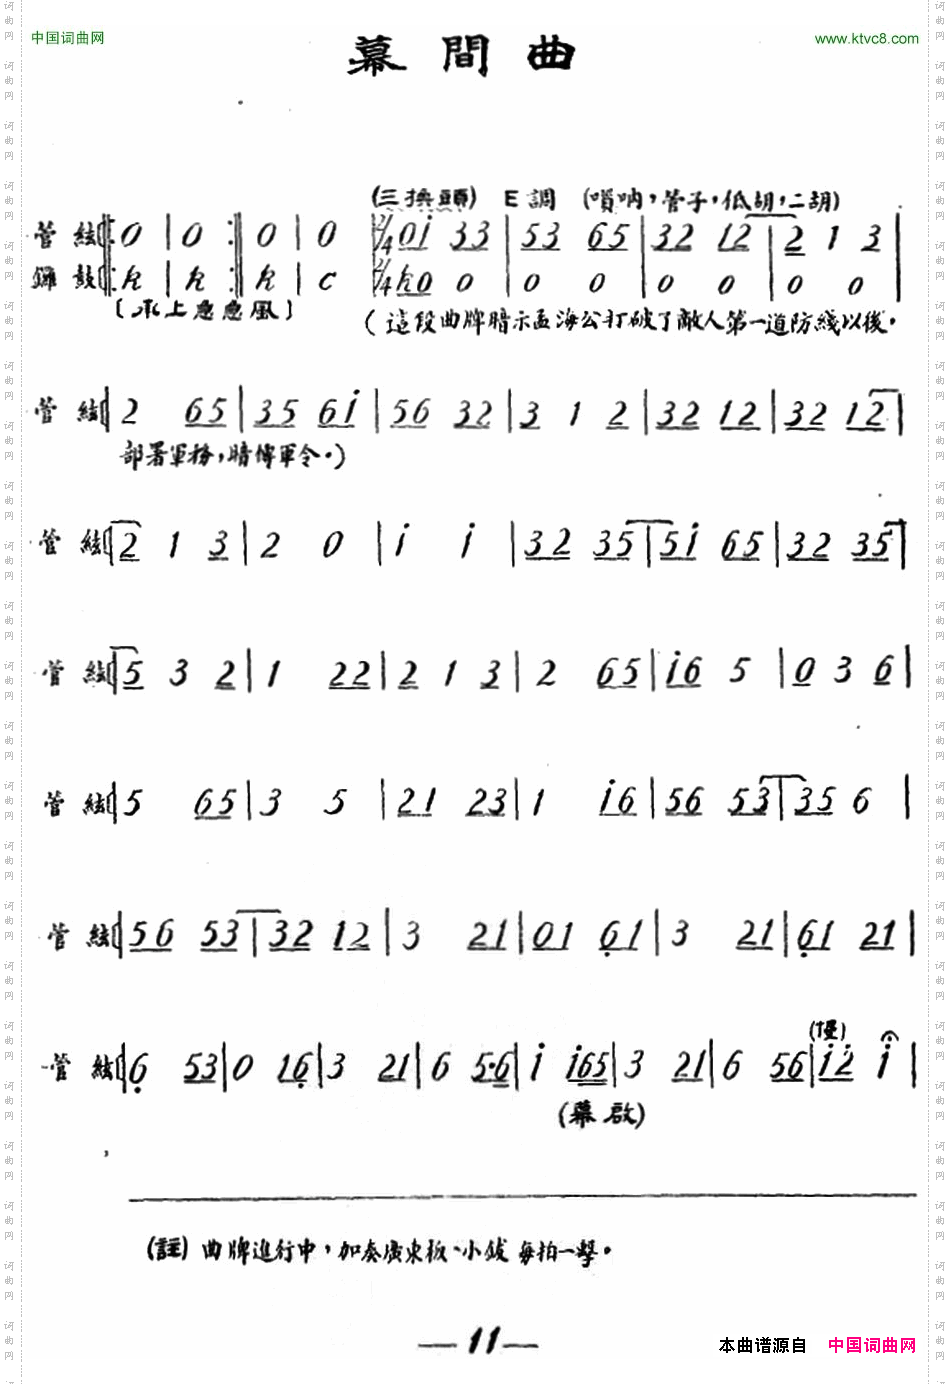 中国词曲网 www.ktvc8.com
幕間曲
(三換頭) E調 (嗩吶,管子,低胡,二胡)
管絃 0 | 0 :‖ 0 | 0 2/4 0i 33 | 53 65 | 32 12 | 2 1 3 |
鑼鼓 K | K :‖ K | C 2/4 K0 0 0 0 0 0 0 0
〔承上急急風〕 (這段曲牌暗示孟海公打破了敵人第一道防綫以後.
管絃 2 65 | 35 6i | 56 32 | 3 1 2 | 32 12 | 32 12 |
部署軍務,暗傳軍令.)
管絃 2 1 3 | 2 0 | i i | 32 35 | 5i 65 | 32 35 |
管絃 5 3 2 | 1 22 | 2 1 3 | 2 65 | i6 5 | 0 3 6 |
管絃 5 65 | 3 5 | 21 23 | 1 i6 | 56 53 | 35 6 |
管絃 56 53 | 32 12 | 3 21 | 01 61 | 3 21 | 61 21 |
(慢)
管絃 6 53 | 0 16 | 3 21 | 6 5·6 | i i65 | 3 21 | 6 56 | i2 i |
(幕啟)
(註) 曲牌進行中,加奏廣東板、小鈸 每拍一擊.
—11—
本曲谱源自 中国词曲网